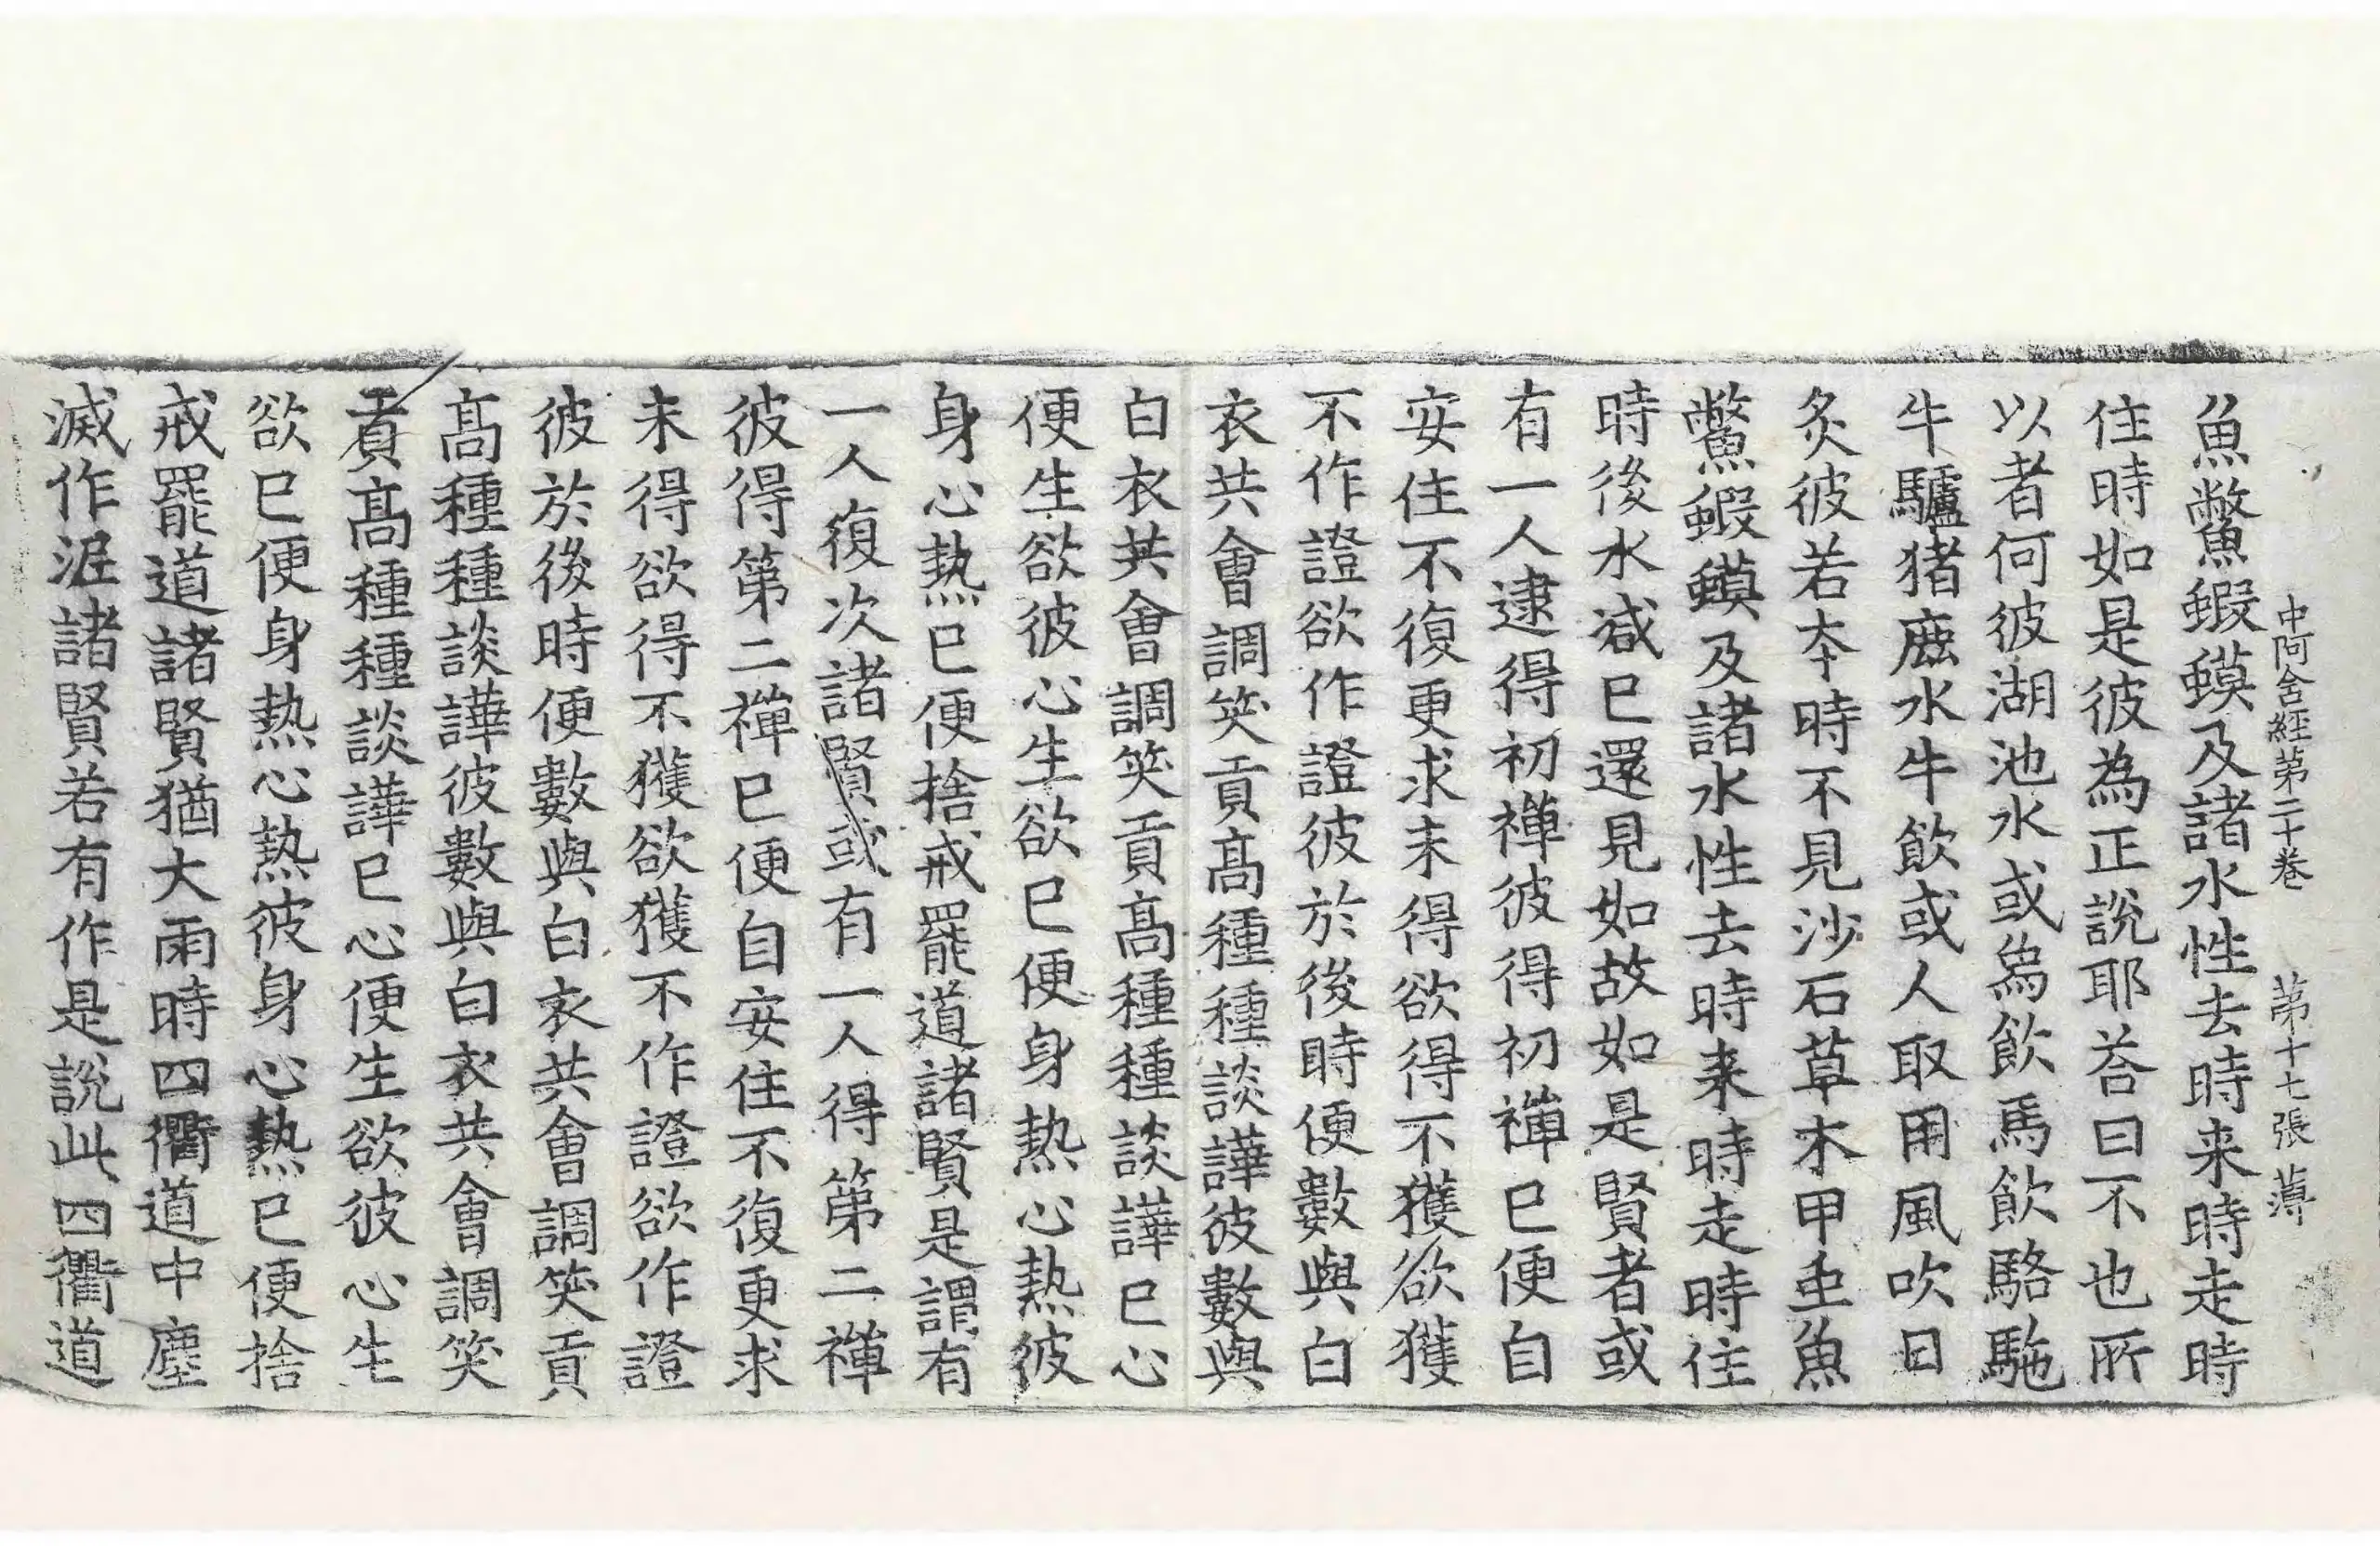 中阿含經第二十卷 第十七張 薄
魚鱉蝦蟆及諸水性去時来時走時
住時如是彼為正說耶荅曰不也所
以者何彼湖池水或烏飲馬飲駱駞
牛驢猪鹿水牛飲或人取用風吹日
炙彼若夲時不見沙石草木甲虫魚
鱉蝦蟆及諸水性去時来時走時住
時後水减巳還見如故如是賢者或
有一人逮得初禪彼得初禪巳便自
安住不復更求未得欲得不獲欲獲
不作證欲作證彼於後時便數與白
衣共會調笑貢髙種種談譁彼數與
白衣共會調笑貢髙種種談譁巳心
便生欲彼心生欲巳便身熱心熱彼
身心熱巳便捨戒罷道諸賢是謂有
一人復次諸賢或有一人得第二禪
彼得第二禪巳便自安住不復更求
未得欲得不獲欲獲不作證欲作證
彼於後時便數與白衣共會調笑貢
髙種種談譁彼數與白衣共會調笑
貢髙種種談譁巳心便生欲彼心生
欲巳便身熱心熱彼身心熱巳便捨
戒罷道諸賢猶大雨時四衢道中塵
滅作泥諸賢若有作是說此四衢道